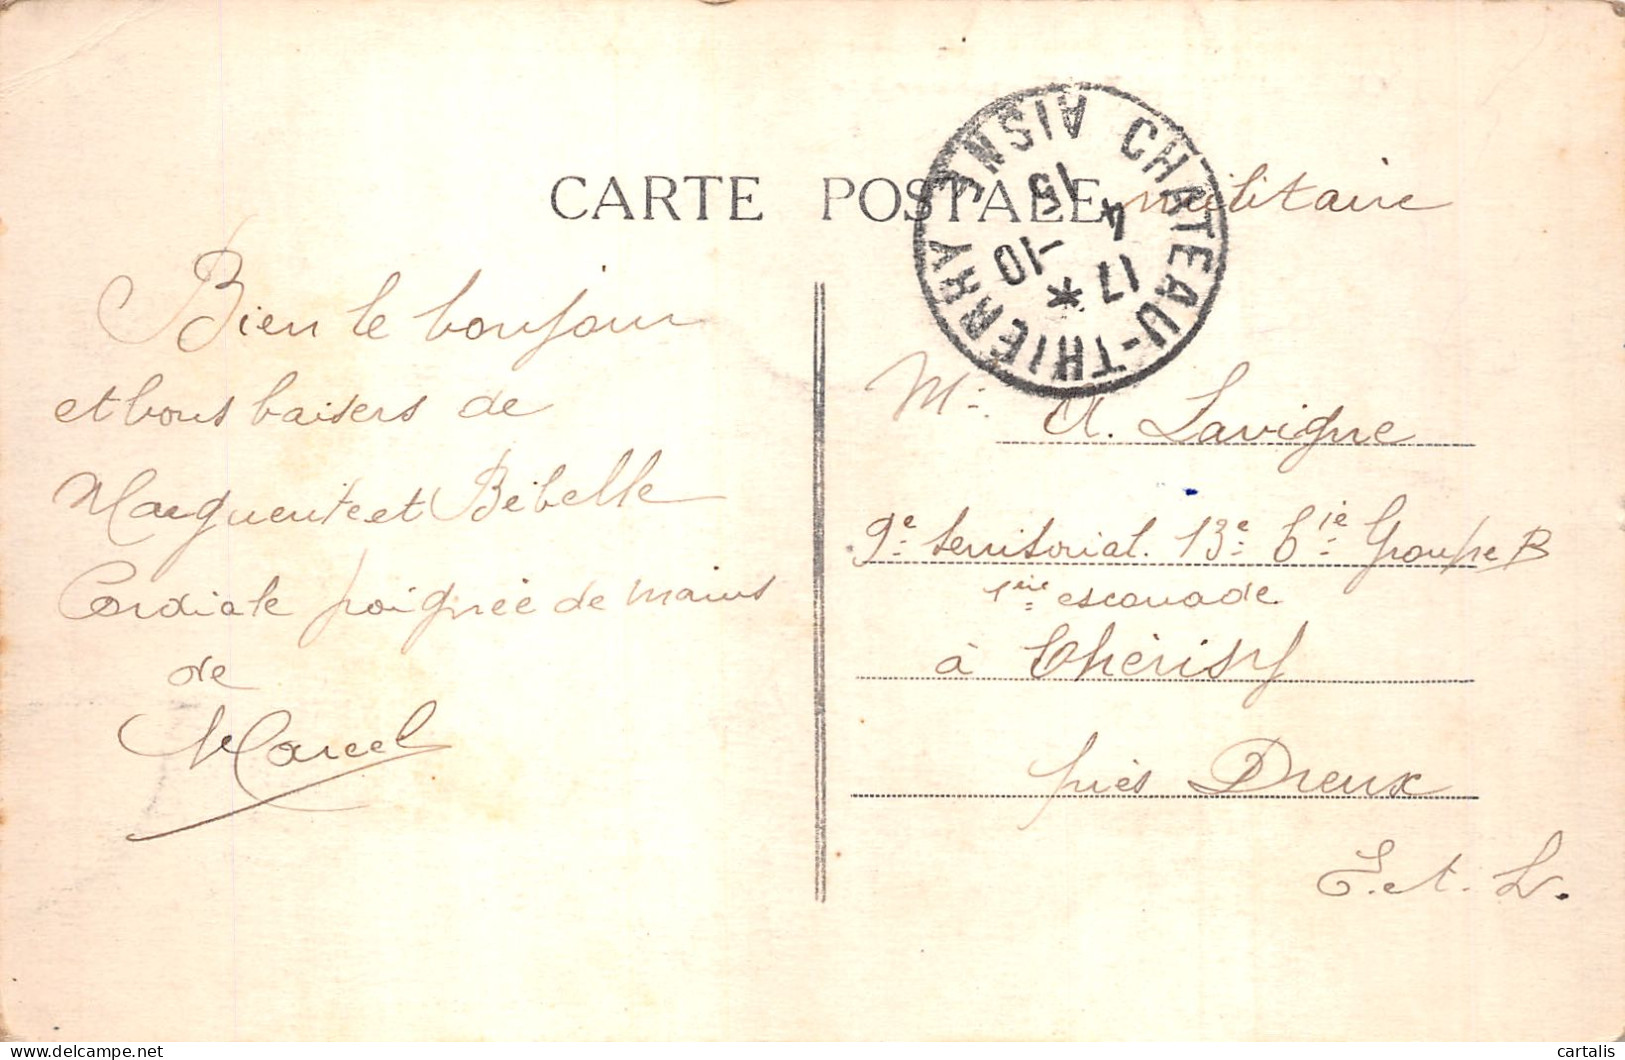 CARTE POSTALE militaire
CHATEAU-THIERRY AISNE
17 * 4
-10
15
Bien le bonjour
et bons baisers de
Marguerite et Bébelle
Cordiale poignéé de mains
de
Marcel
Mr. A. Lavigne
9e territorial. 13e Cie Groupe B
1ère escouade
à Chérisy
près Dreux
E. et. L.
cartalis
delcampe.net